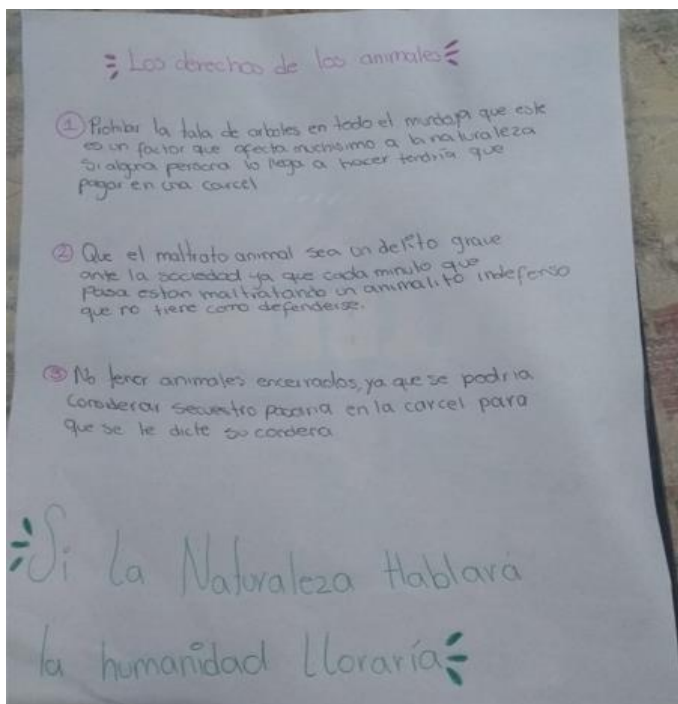 Los derechos de los animales
① Prohibir la tala de arboles en todo el mundo, ya que este
es un factor que afecta muchisimo a la naturaleza
Si alguna persona lo llega a hacer tendría que
pagar en una carcel
② Que el maltrato animal sea un delito grave
ante la sociedad ya que cada minuto que
pasa estan maltratando un animalito indefenso
que no tiene como defenderse.
③ No tener animales encerrados, ya que se podria
considerar secuestro pagaria en la carcel para
que se le dicte su condena
Si La Naturaleza Hablará
la humanidad Lloraría